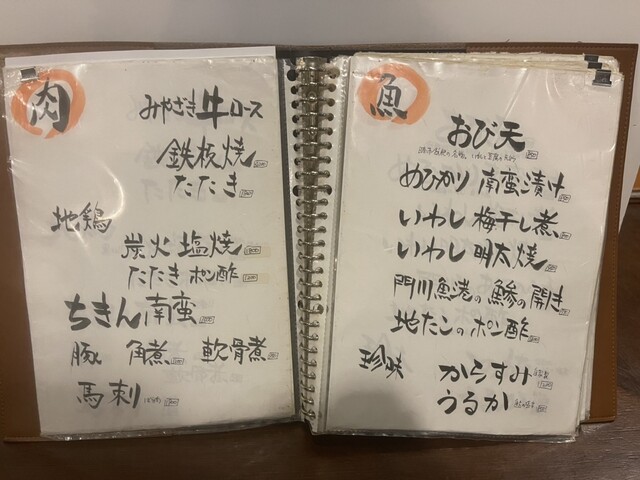 肉
みやざき牛ロース
鉄板焼
たたき
地鶏
炭火塩焼
たたき ポン酢
ちきん南蛮
豚 角煮 軟骨煮
馬刺
魚
おび天
めひかり 南蛮漬け
いわし 梅干し煮
いわし 明太焼
門川魚港の鯵の開き
地たこのポン酢
珍味 からすみ
うるか